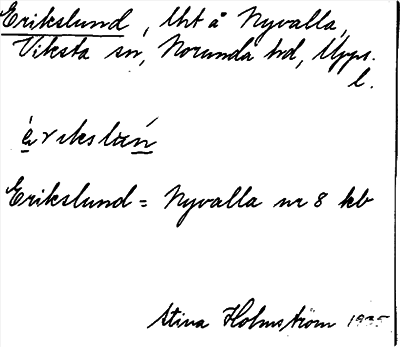 Erikslund, lht å Nyvalla,
Viksta sn, Norunda hd, Upps.
l.
èrikslún
Erikslund = Nyvalla nr 8 kb
Stina Holmström 1935